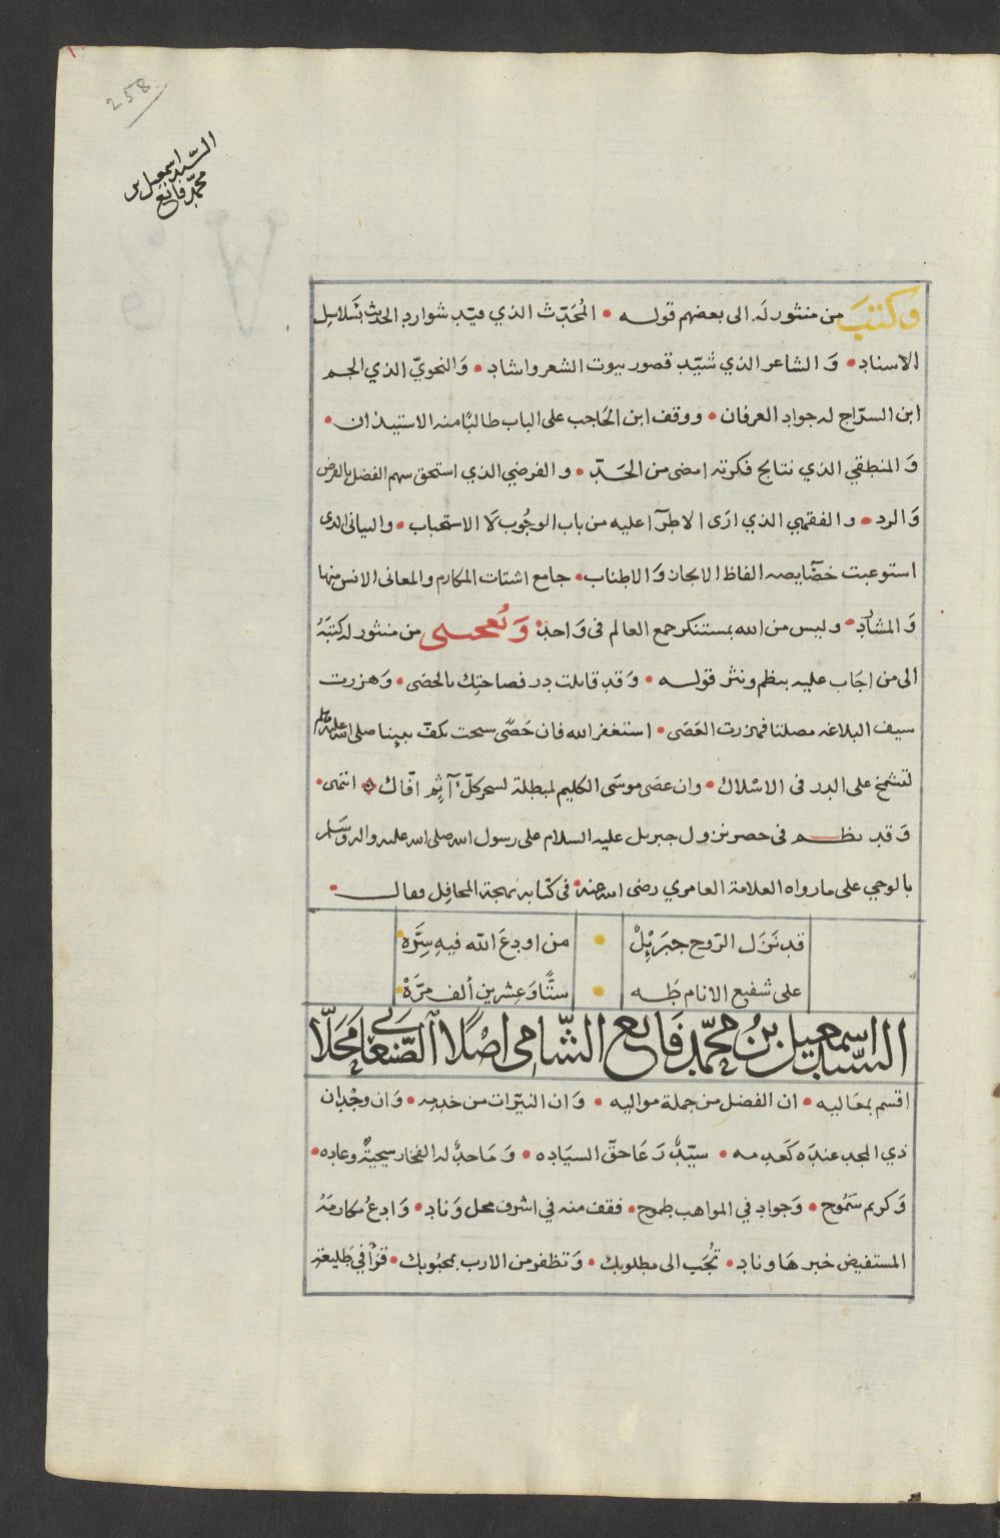 258
السيد اسمعيل بن
محمد فايع
وكتبَ من منثور له الى بعضهم قوله • المُحَدّث الذي قيّد شوارد الحديث بسَلاسِل
الاسناد • وَالشاعر الذي شيّد قصور بيوت الشعر واشاد • وَالنحويّ الذي الجم
ابن السرّاج له جواد العرفان • ووقف ابن الحَاجب على الباب طالبًا منه الاستيذان •
وَالمنطقي الذي نتايج فكرته امضى من الحَدّ • والفرضي الذي استحق سهم الفضل بالفرض
وَالرد • والفقهي الذي ارَى الاطرآ عليه من باب الوجُوب لَا الاستحباب • والبيانى الذى
استوعبت خصَآيصه الفاظ الايجاز وَالاطناب • جامع اشتات المكارم والمعانى الانس منها
وَالمشارد • وليس من الله بمستنكر جمع العالم فى وَاحد • وَيُعجبنى من منثور له كتبَهُ
الى من اجَاب عليه بنظم ونثر قوله • وَقد قابلت در فصاحتك بالحصَى • وَهزرت
سيف البلاغه مصلتا فهزرت العَصَى • استغفر الله فان حَصًى سبحت بكفّ نبينا صلى الله عليه وسلم
لتشمخ على الدر فى الاسْلاك • وان عصَى موسَى الكليم لمبطلة لسحر كلّ آثِم افّاك • انتهى •
وَقد نظم فى حصر نزول جبريل عليه السلام على رسول الله صلى الله عليه واله وسَلم
بالوحي على ما رواه العلامة العامري رضى الله عنه • فى كتابه بهجة المحافل فقال •
قد نَزَل الرّوح جبرَئِلْ • من اودعَ الله فيهِ سِرَّه
على شفيع الانام طَه • ستًّا وَعِشرين ألف مَرَّهْ
السيّد اسمعيل بنُ محمّد فَايع الشّامي اصْلًا الصّنعَاني مَحَلّا
اقسم بمعَاليه • ان الفضل من جملة مواليه • وَان النيّرات من خدمه • وَان وجْدان
ذي المجد عندَه كَعَدمه • سيّدٌ رَعَا حقّ السيَاده • وَمَاجدٌ له الفخار سجيّةٌ وعاده •
وَكريم سَمُوح • وَجواد في المواهب طموح • فقف منه في اشرف محل وَناد • وَادعُ مكارمَهُ
المستفيض خبرها وناد • تُجَب الى مطلوبك • وَتظفر من الارب بمحبُوبك • قرَأ في طَليعة